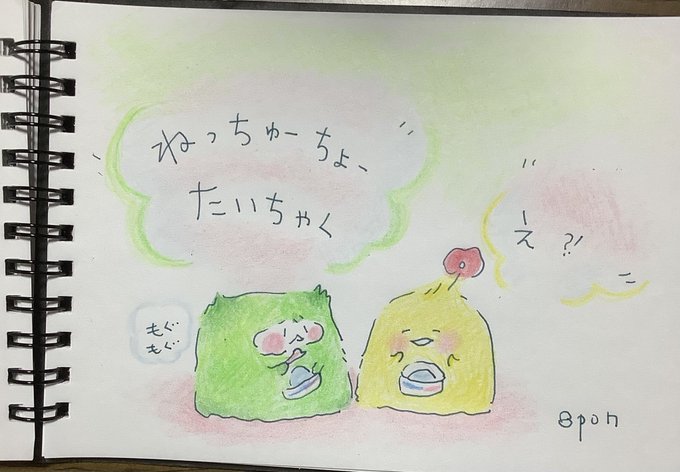 ねっちゅーちょー
たいちゃく
え?!
もぐ
もぐ
8pon